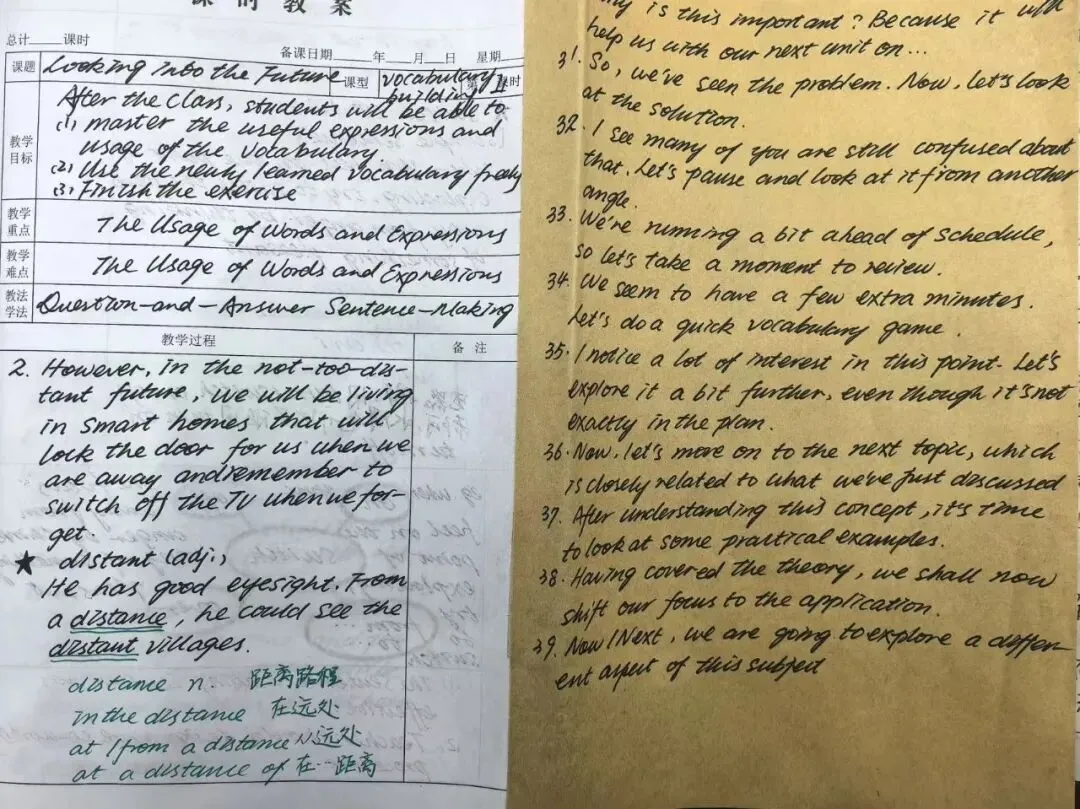 课时教案
总计 课时
备课日期 年 月 日 星期
课题 Looking into the Future 课型 vocabulary building 第 II 课时
教学目标
After the class, students will be able to
(1) master the useful expressions and
usage of the vocabulary.
(2) Use the newly learned vocabulary freely
(3) Finish the exercise
教学重点 The Usage of Words and Expressions
教学难点 The Usage of Words and Expressions
教法学法 Question-and-Answer Sentence-Making
教学过程 备注
2. However, in the not-too-dis-
tant future, we will be living
in smart homes that will
lock the door for us when we
are away and remember to
switch off the TV when we for-
get.
★ distant (adj.)
He has good eyesight. From
a distance, he could see the
distant villages.
distance n. 距离路程
in the distance 在远处
at / from a distance 从远处
at a distance of 在…距离
is this important? Because it will
help us with our next unit on...
31. So, we've seen the problem. Now, let's look
at the solution.
32. I see many of you are still confused about
that. Let's pause and look at it from another
angle.
33. We're running a bit ahead of schedule,
so let's take a moment to review.
34. We seem to have a few extra minutes.
Let's do a quick vocabulary game.
35. I notice a lot of interest in this point. Let's
explore it a bit further, even though it's not
exactly in the plan.
36. Now, let's move on to the next topic, which
is closely related to what we've just discussed
37. After understanding this concept, it's time
to look at some practical examples.
38. Having covered the theory, we shall now
shift our focus to the application.
39. Now / Next, we are going to explore a differ-
ent aspect of this subject